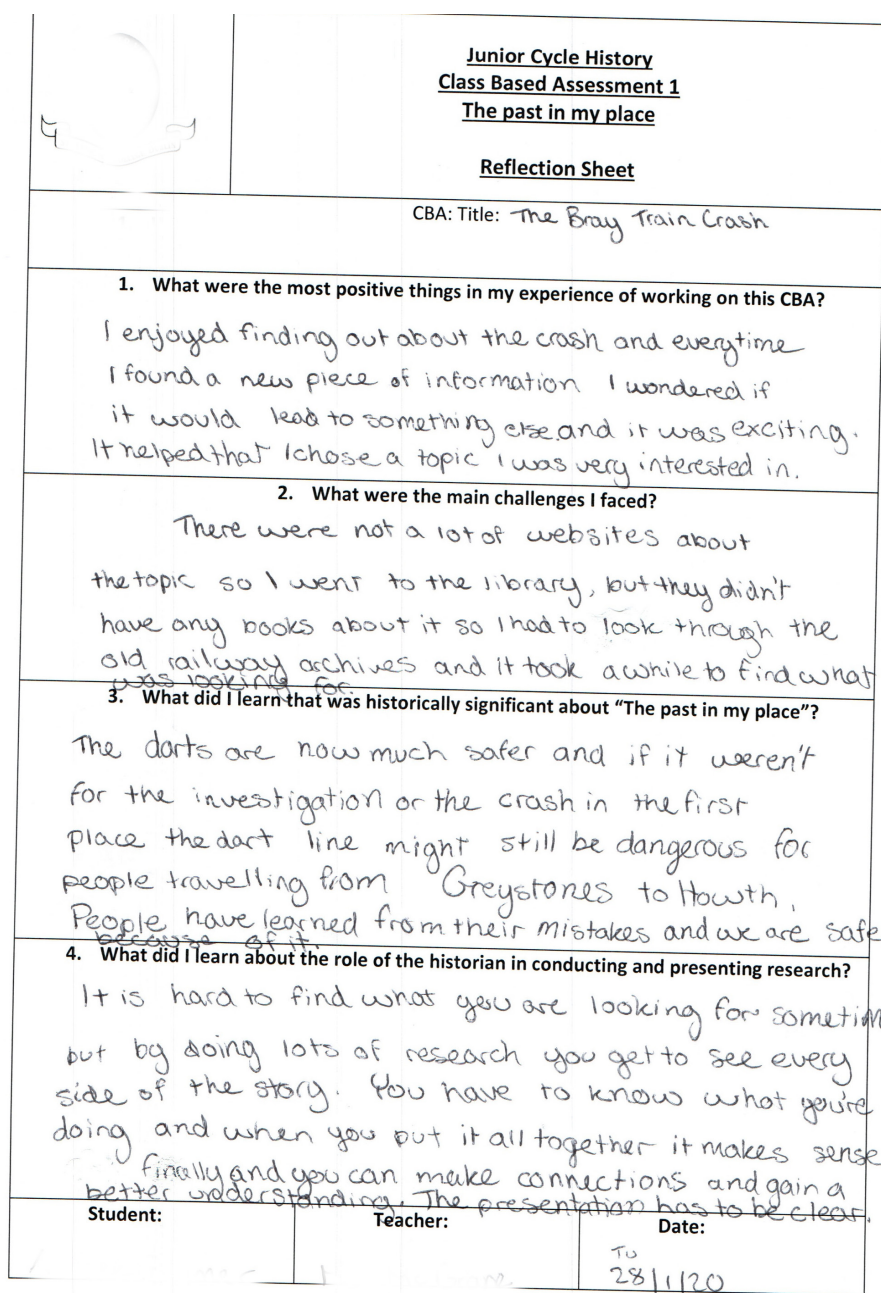 Junior Cycle History
Class Based Assessment 1
The past in my place
Reflection Sheet
CBA: Title: The Bray Train Crash
1. What were the most positive things in my experience of working on this CBA?
I enjoyed finding out about the crash and everytime
I found a new piece of information I wondered if
it would lead to something else and it was exciting.
It helped that I chose a topic I was very interested in.
2. What were the main challenges I faced?
There were not a lot of websites about
the topic so I went to the library, but they didn't
have any books about it so I had to look through the
old railway archives and it took a while to find what
was looking for.
3. What did I learn that was historically significant about “The past in my place”?
The darts are now much safer and if it weren't
for the investigation or the crash in the first
place the dart line might still be dangerous for
people travelling from Greystones to Howth.
People have learned from their mistakes and we are safe
because of it.
4. What did I learn about the role of the historian in conducting and presenting research?
It is hard to find what you are looking for sometim
but by doing lots of research you get to see every
side of the story. You have to know what you're
doing and when you put it all together it makes sense
finally and you can make connections and gain a
better understanding. The presentation has to be clear.
Student:
Teacher:
Date:
TU
28/1/20